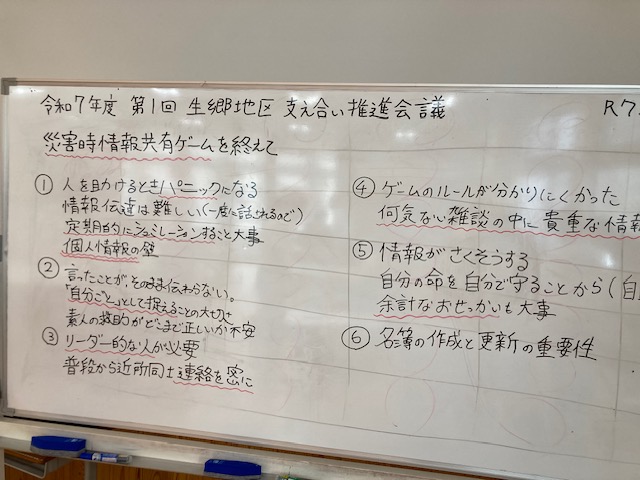 令和7年度 第1回 生郷地区 支え合い推進会議
R7.
災害時情報共有ゲームを終えて
① 人を助けるときパニックになる
情報伝達は難しい(一度に話されるので)
定期的にシュミレーションすること大事
個人情報の壁
② 言ったことが、そのまま伝わらない。
「自分ごと」として捉えることの大切さ
素人の救助がどこまで正しいか不安
③ リーダー的な人が必要
普段から近所同士連絡を密に
④ ゲームのルールが分かりにくかった
何気ない雑談の中に貴重な情報
⑤ 情報がさくそうする
自分の命を自分で守ることから(自
余計なおせっかいも大事
⑥ 名簿の作成と更新の重要性